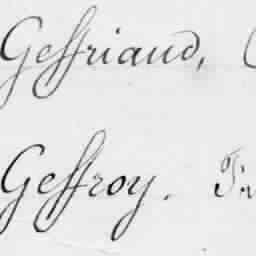 Geffriaud,
Geffroy.